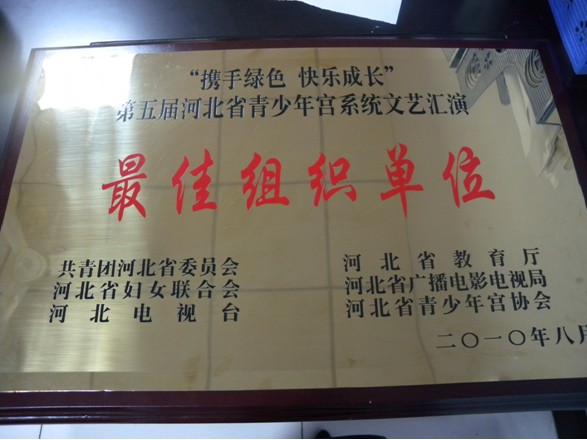 “携手绿色 快乐成长”
第五届河北省青少年宫系统文艺汇演
最佳组织单位
共青团河北省委员会
河北省妇女联合会
河北电视台
河北省教育厅
河北省广播电影电视局
河北省青少年宫协会
二〇一〇年八月